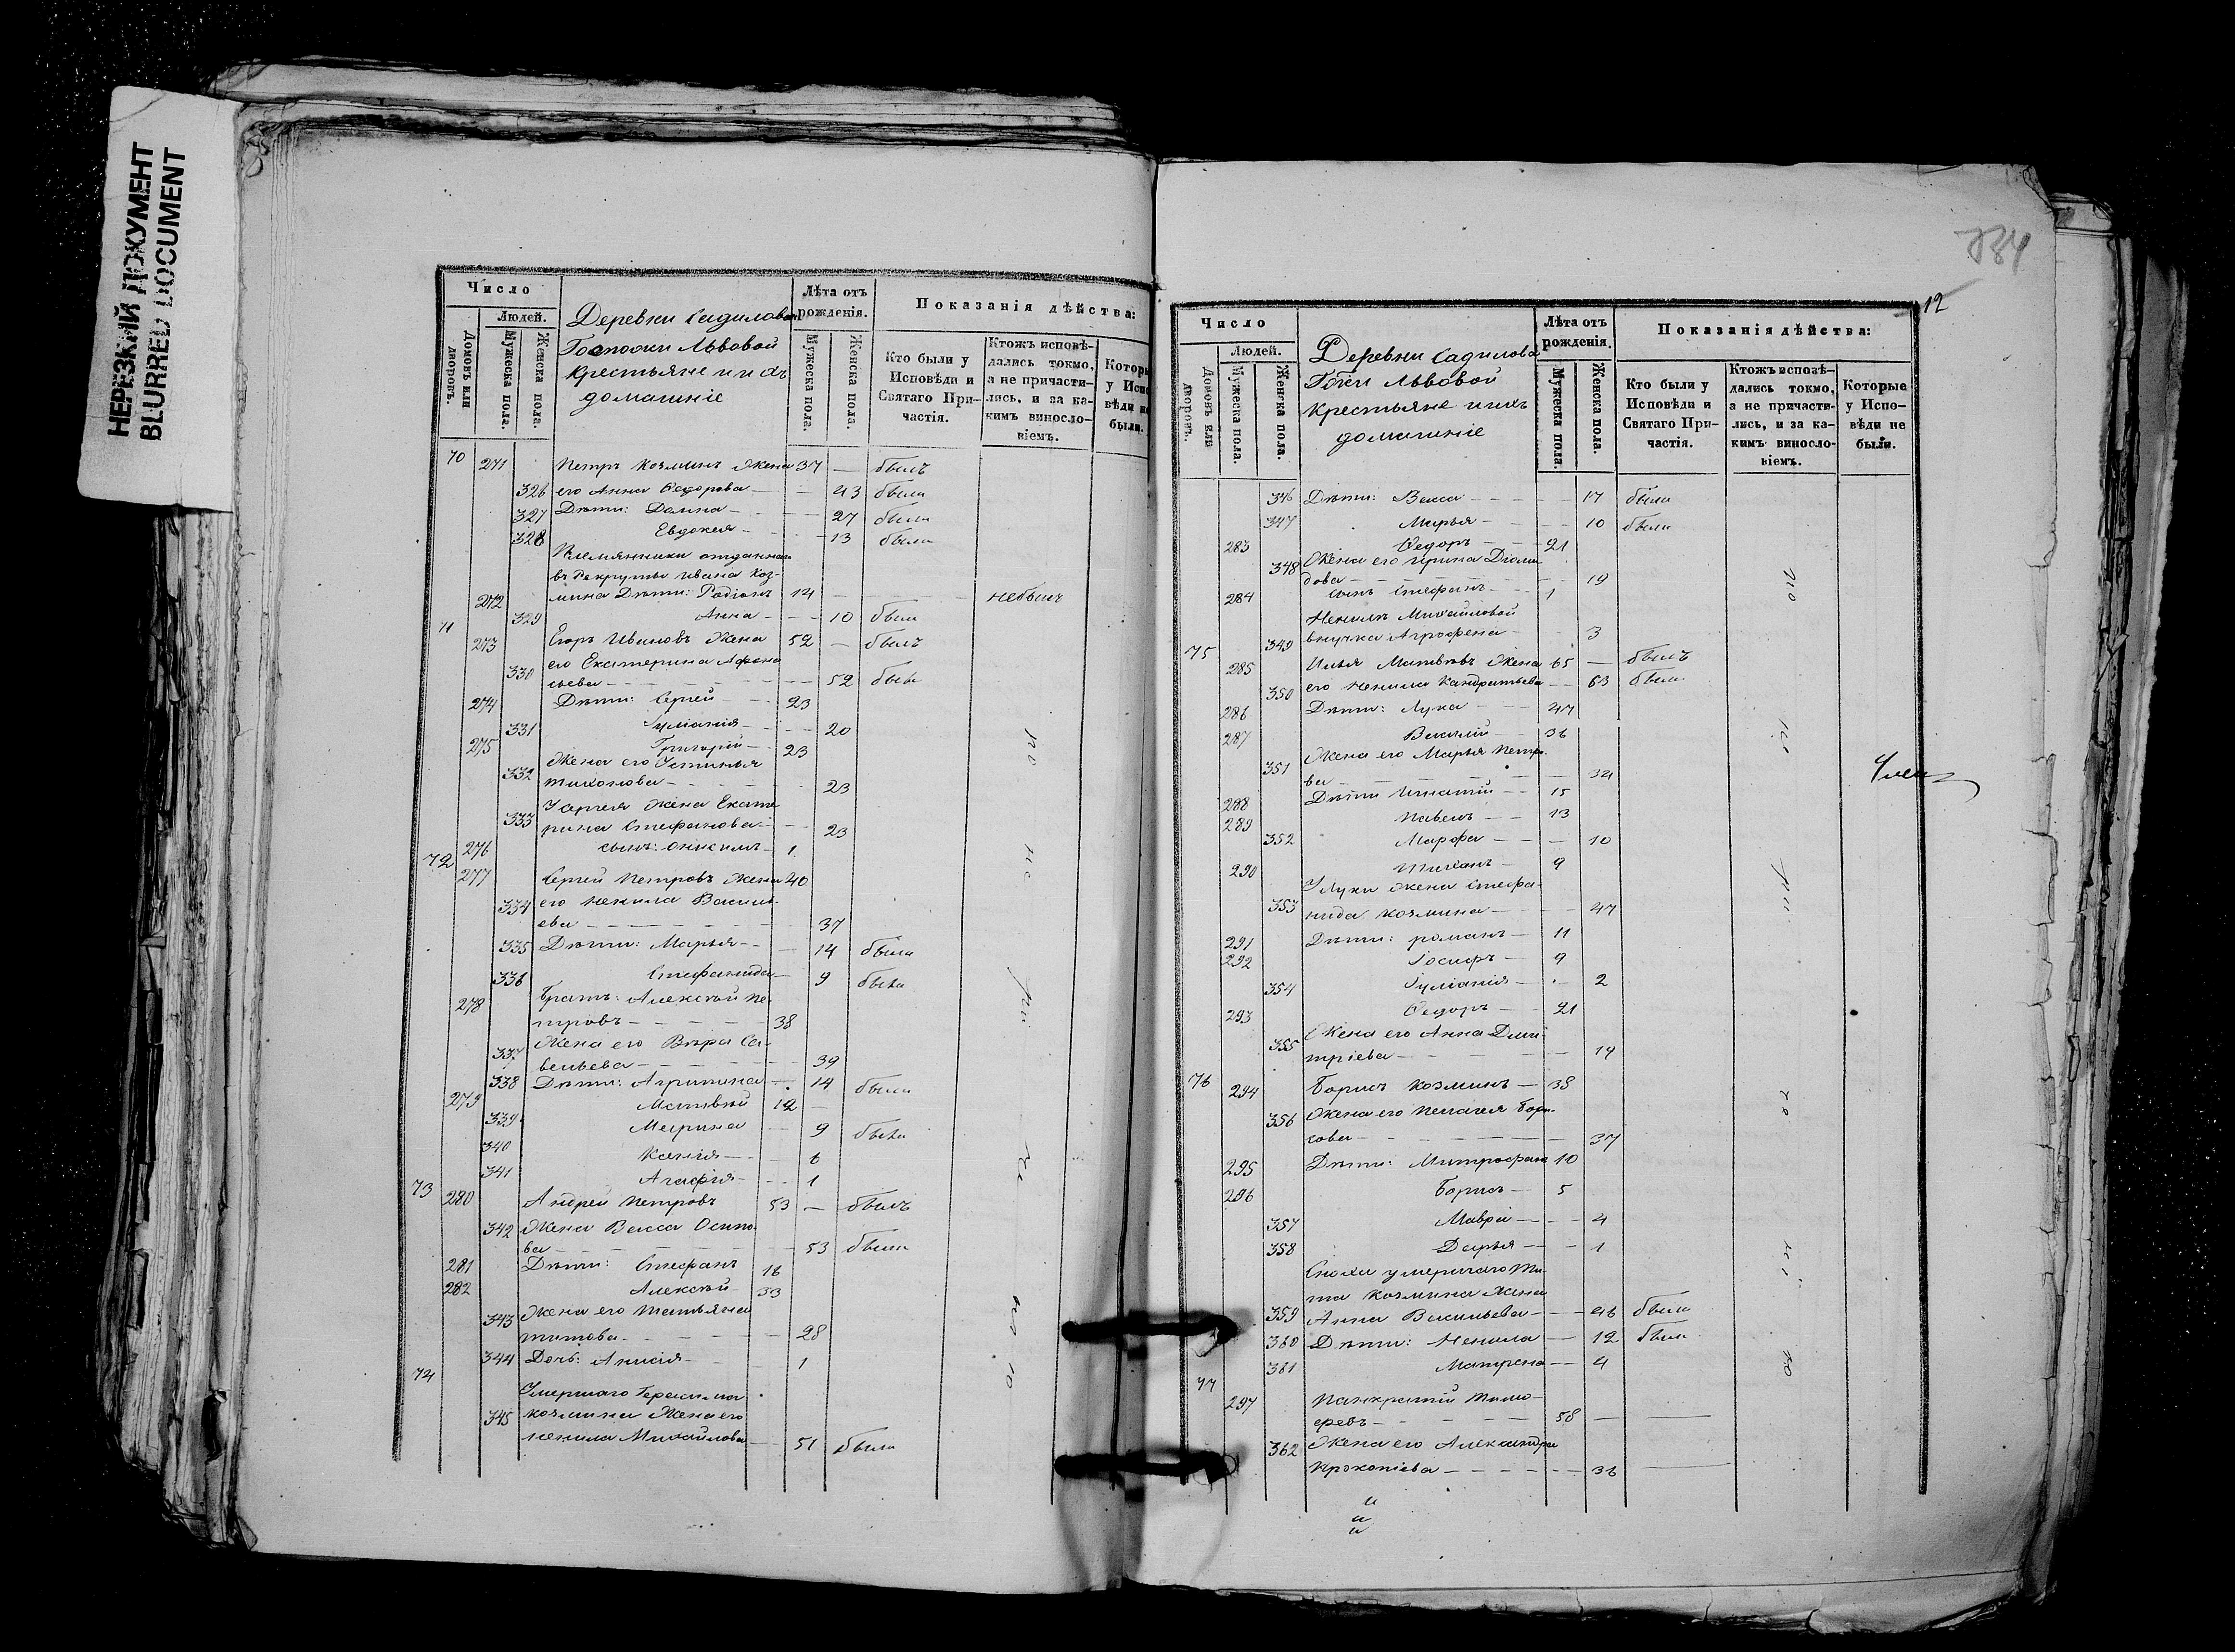 НЕРЕЗКИЙ ДОКУМЕНТ
BLURRED DOCUMENT
Число
Людей.
Домовъ или дворовъ.
Мужеска пола.
Женска пола.
Деревни Садилова
Госпожи Львовой
крестьяне и ихъ
домашніе
Лѣта отъ рожденія.
Мужеска пола.
Женска пола.
Показанія дѣйства:
Кто были у Исповѣди и Святаго Причастія.
Ктожъ исповѣдались токмо, а не причастились, и за какимъ винословіемъ.
Которы у Испо вѣди не были.
70 271 Петръ Козминъ Жена 37 — былъ
326 его Анна Федорова — — 43 была
327 Дѣти: Домна — — 27 была
328 Евдокея — — 13 была
Племянники отданнаго
въ рекруты Ивана Коз-
272 мина Дѣти: Родіонъ 14 — — небылъ
329 Анна — — 10 была
71 273 Егоръ Ивановъ Жена 52 — былъ
330 его Екатерина Афона
сьева — — 52 была
274 Дѣти: Сергей — 23
331 Іуліанія — — 20
275 Григорій — 23
332 Жена его Устинья
Тихонова — 23
333 У Сергея Жена Екате
рина Стефанова — — 23
276 сынъ: Онисимъ — 1
72 277 Сергей Петровъ Жена 40
334 его Ненила Василь-
ева — 37
335 Дѣти: Марья — — 14 была
336 Стефанида — 9 была
278 Братъ: Алексѣй Пе-
тровъ — 38
337 Жена его Вѣра Са-
вельева — 39
338 Дѣти: Агрипина — 14 была
279 Матвѣй 12 —
339 Марина — 9 была
340 Ксенія — — 6
341 Агафія — — 1
73 280 Андрей Петровъ 53 — былъ
342 Жена Васса Осипо
ва — 53 была
281 Дѣти: Стефанъ 16
282 Алексѣй — 33
343 Жена его Татьяна
Титова — 28
344 Дочь: Анисія — 1
74 Умершаго Герасима
345 Козмина Жена его
Ненила Михайлова — 51 была
734
12
Число
Людей.
Домовъ или дворовъ.
Мужеска пола.
Женска пола.
Деревни Садилова
Гжи Львовой
крестьяне и ихъ
домашніе
Лѣта отъ рожденія.
Мужеска пола.
Женска пола.
Показанія дѣйства:
Кто были у Исповѣди и Святаго Причастія.
Ктожъ исповѣдались токмо, а не причастились, и за какимъ винословіемъ.
Которые у Исповѣди не были.
346 Дѣти: Васса — — 17 была
347 Марья — — 10 была
283 Федоръ — 21
348 Жена его Ирина Діоми
дова — 19
284 сынъ Стефанъ — 1
Ненилы Михайловой
349 внучка Агрофена — 3
75 285 Илья Матвѣевъ Жена 65 — былъ
350 его Ненила Кандратьева — 63 была
286 Дѣти: Лука — 47
287 Василій — 36
351 Жена его Марья Петро
ва — 34
288 Дѣти Игнатій — 15
289 Павелъ — 13
352 Марфа — — 10
290 Тихонъ — 9
У Луки Жена Стефа-
353 нида Козмина — 47
291 Дѣти: Романъ — 11
292 Іосифъ — 9
354 Іуліанія — — 2
293 Федоръ — 21
355 Жена его Анна Дми-
тріева — 19
76 294 Борисъ Козминъ — 38
356 Жена его Пелагея Бори-
сова — 37
295 Дѣти: Митрофанъ 10
296 Борисъ — 5
357 Мавра — — 4
358 Дарья — — 1
Сноха умершаго Ти-
та Козмина Жена
359 Анна Васильева — — 46 была
360 Дѣти: Ненила — 12 была
361 Матрена — — 4
77 297 Панкратій Тимо-
феевъ — 58 — —
362 Жена его Александра
Прокопіева — — 36 —